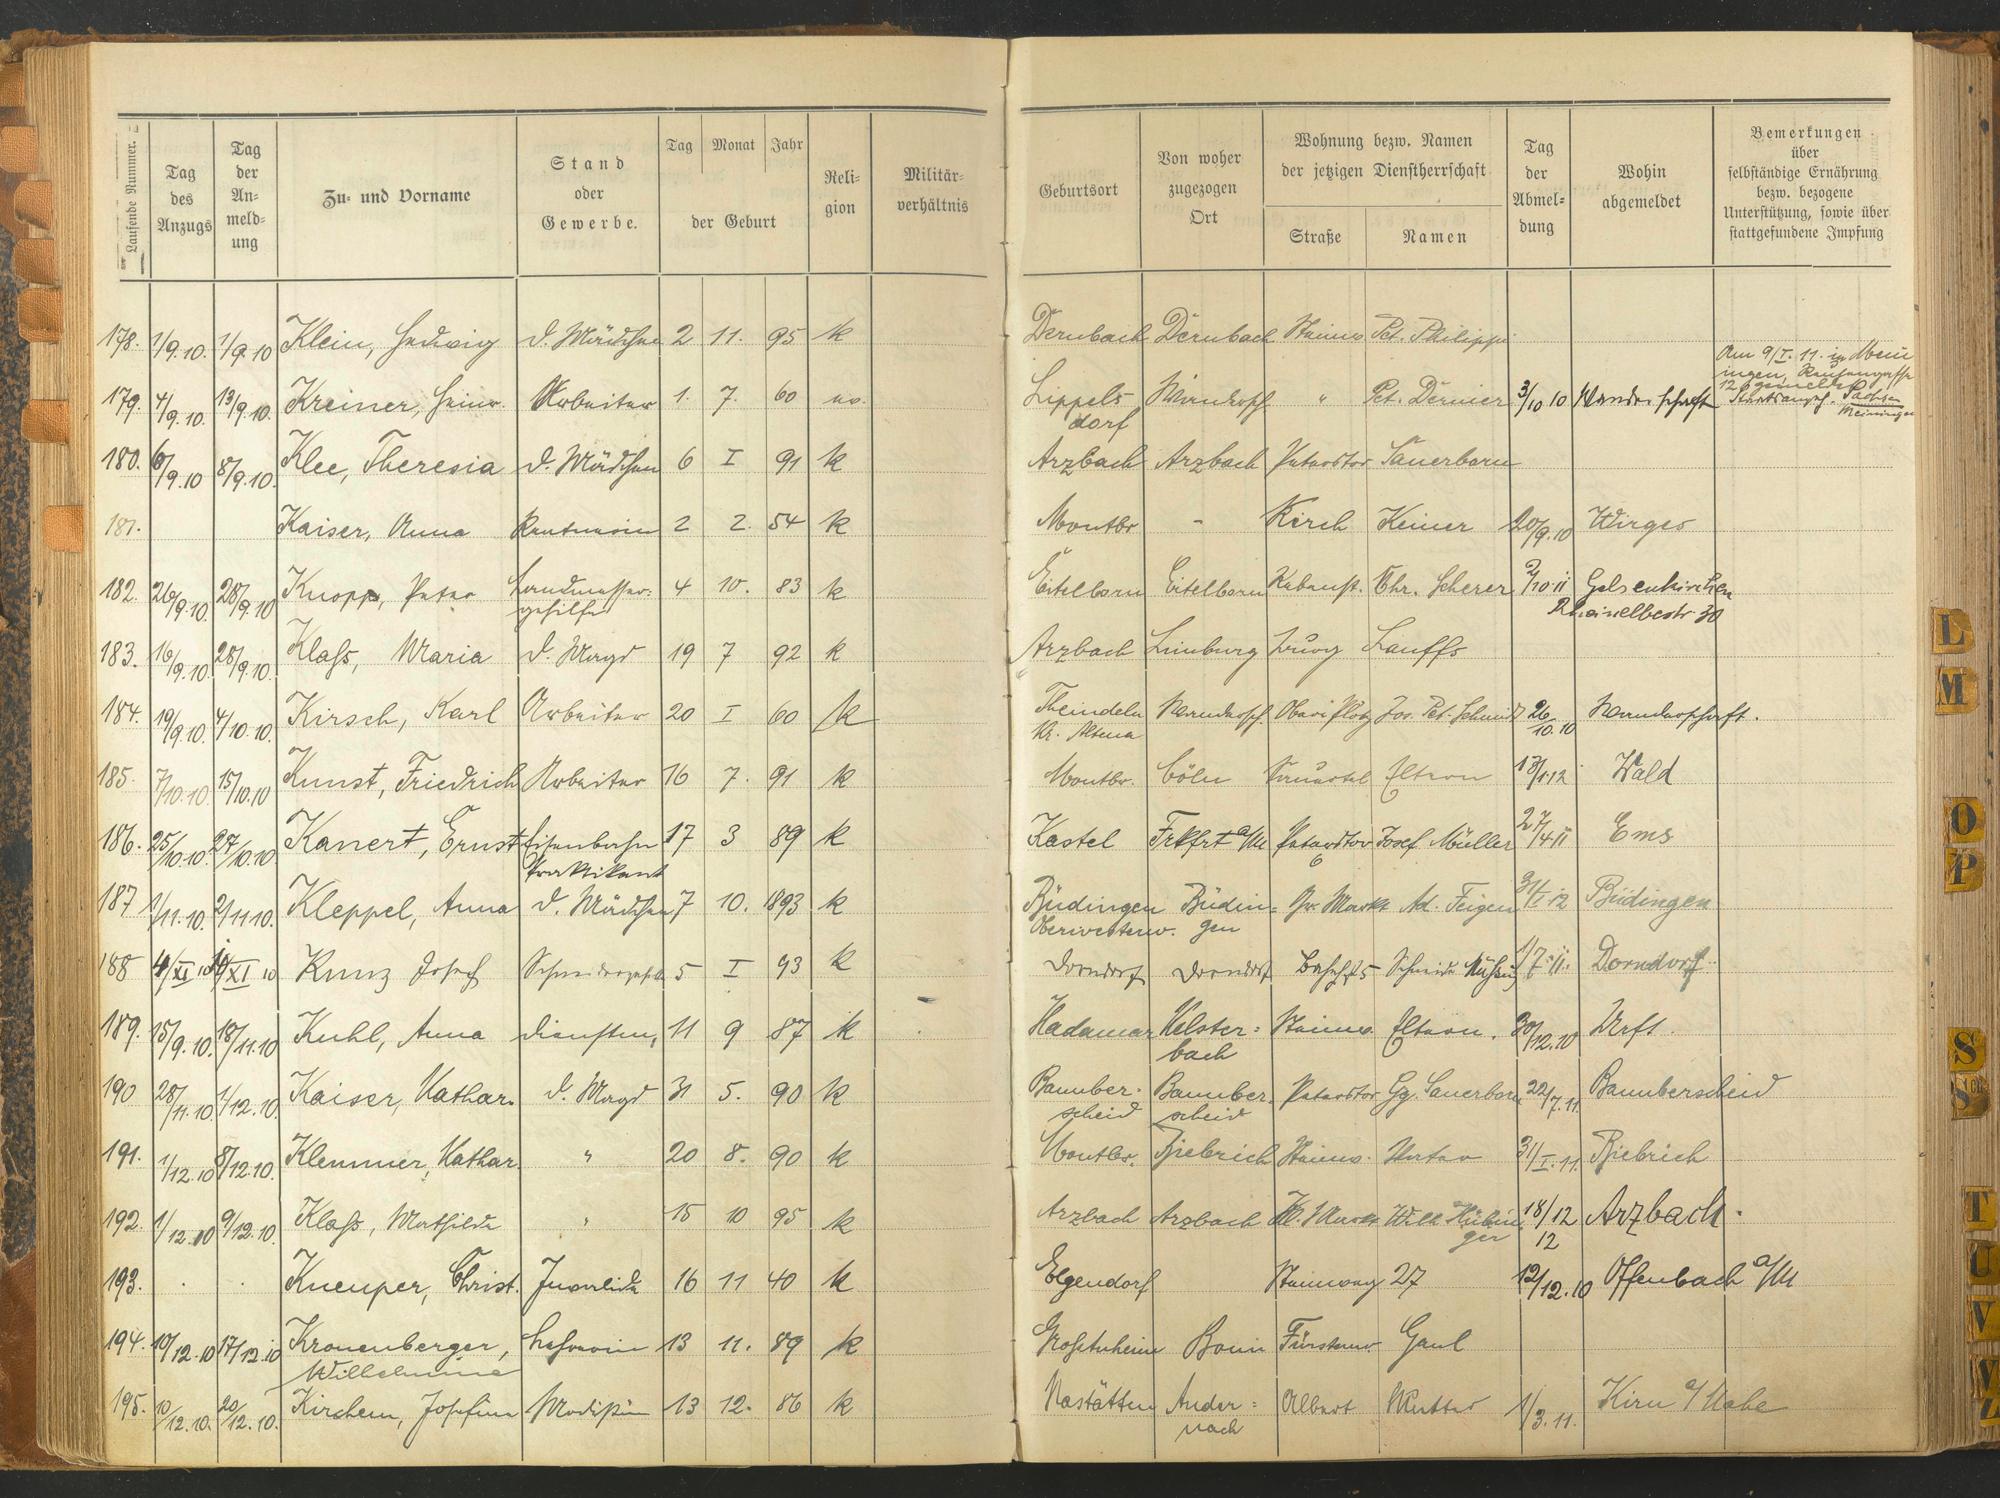 Laufende Nummer.
Tag des Anzugs
Tag der An- meld- ung
Zu- und Vorname
Stand oder Gewerbe.
Tag Monat Jahr
der Geburt
Reli- gion
Militär- verhältnis
Geburtsort
Von woher zugezogen Ort
Wohnung bezw. Namen der jetzigen Dienstherrschaft
Straße Namen
Tag der Abmel- dung
Wohin abgemeldet
Bemerkungen über selbständige Ernährung bezw. bezogene Unterstützung, sowie über stattgefundene Impfung
178. 1/9.10. 1/9.10 Klein, Hedwig d. Mädchen 2 11. 95 k Dernbach Dernbach Steinw Pet. Philippi
Am 9/I. 11. in Mein
ingen,
179. 4/9.10. 13/9.10. Kreiner, Heinr. Arbeiter 1. 7. 60 ev. Lippels Pet. Dernier 3/10 10 Wanderschaft
dorf
Sachsen
Meiningen
180. 6/9.10 8/9.10. Klee, Theresia d. Mädchen 6 I 91 k Arzbach Arzbach Peterstor Sauerborn
181. Kaiser, Anna Rentnerin 2 2. 54 k Montbr - Kirch Keiner 20/9.10 Wirges
182. 26/9.10. 28/9.10 Knopp, Peter Landmesser- 4 10. 83 k Eitelborn Eitelborn Chr. Scherer 2/10 11 Gelsenkirchen
gehilfe
Rheinelbestr 30
183. 16/9.10. 28/9.10. Klaß, Maria d. Magd 19 7 92 k Arzbach Limburg Lauffs
184. 19/9.10. 4/10.10. Kirsch, Karl Arbeiter 20 I 60 k Jos. Pet. Schmidt 26/10.10 Wanderschaft.
Kr. Altena
185. 7/10.10. 15/10.10 Kunst, Friedrich Arbeiter 16 7. 91 k Montbr. Cöln Sauertal Eltern 13/1 12 Wald
186. 25/10.10. 27/10.10. Kanert, Ernst Eisenbahn 17 3 89 k Kastel Frkfrt a/M Peterstor Josef Müller 27/4 11 Ems
Praktikant
6
187 1/11.10. 2/11 10. Kleppel, Anna d. Mädchen 7 10. 1893 k Büdingen Büdin= Gr. Markt Ad. Feigen 31/I 12 Büdingen
Oberwesterw. gen
188 4/XI 10 XI 10 Kunz Josef Schneidergeselle 5 I 93 k Dorndorf Dorndorf Bahnhfst 5 1/7 11. Dorndorf.
189. 15/9.10. 18/11.10 Kuhl, Anna Dienstm. 11 9 87 k Hadamar Kelster= Steinw. Eltern. 30/12.10
bach
190 28/11.10. 1/12.10. Kaiser, Kathar. d. Magd 31 5. 90 k Bannber- Bannber. Peterstor Gg. Sauerborn 22/7.11. Bannberscheid
scheid scheid
191. 1/12.10 8/12.10. Klemmer, Kathar. " 20 8. 90 k Montbr. Biebrich Steinw. 31/I. 11. Biebrich
192. 1/12.10 9/12.10. Klaß, Mathilde " 15 10 95 k Arzbach Arzbach Kl. Markt Wilh Hübin 18/12 Arzbach.
ger 12
193. . . Kneuper, Christ. Invalide 16 11 40 k Elgendorf Steinweg 27 12/12.10 Offenbach a/M
194. 10/12.10 17/12.10 Kronenberger, Lehrerin 13 11. 89 k Bonn Fürstenw. Gaul
Wilhelmine
195. 10/12.10. 20/12.10. Kirchem, Josefine Modistin 13 12. 86 k Nastätten Ander= Albert Mutter 1/3.11. Kirn a/Nahe
nach
L
M
O
P
S
T
U
V
Z